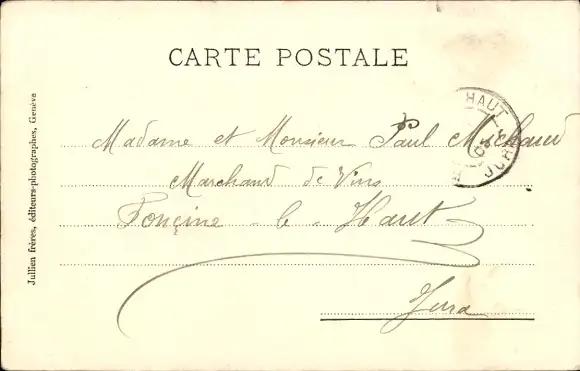 CARTE POSTALE
Madame et Monsieur Paul Michaud
Marchand de Vins
Fonçine - le - Haut
Jura
Jullien frères, éditeurs-photographes, Genève
HAUT
JURA